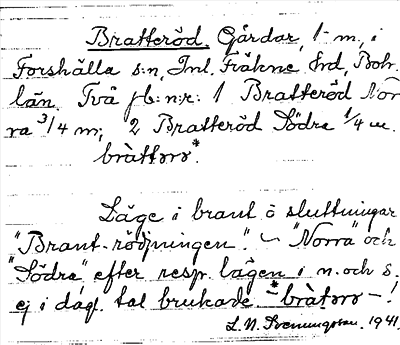 Bratteröd. Gårdar, 1 m, i
Forshälla s:n, Inl. Fräkne hd, Boh.
län. Två jb:n:r: 1 Bratteröd Nor
ra 3/4 m; 2 Bratteröd Södra 1/4 m.
bràttørø*
Läge i brant ö sluttningar
"Brant-röjningen". ~ "Norra" och
"Södra" efter resp. lägen i n. och s.
ej i dagl. tal brukade. *-bràtørø-!
L. N. Svenungsson. 1941.